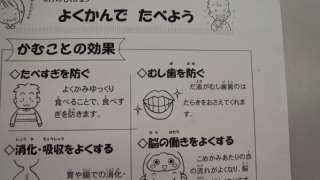 よくかんで たべよう
かむことの効果
◇たべすぎを防ぐ
よくかみゆっくり
食べることで、食べす
ぎを防ぎます。
◇むし歯を防ぐ
だ液がむし歯菌のは
たらきをおさえてくれま
す。
◇消化・吸収をよくする
胃や腸での消化・
◇脳の働きをよくする
こめかみあたりの
流れがよくなり、脳